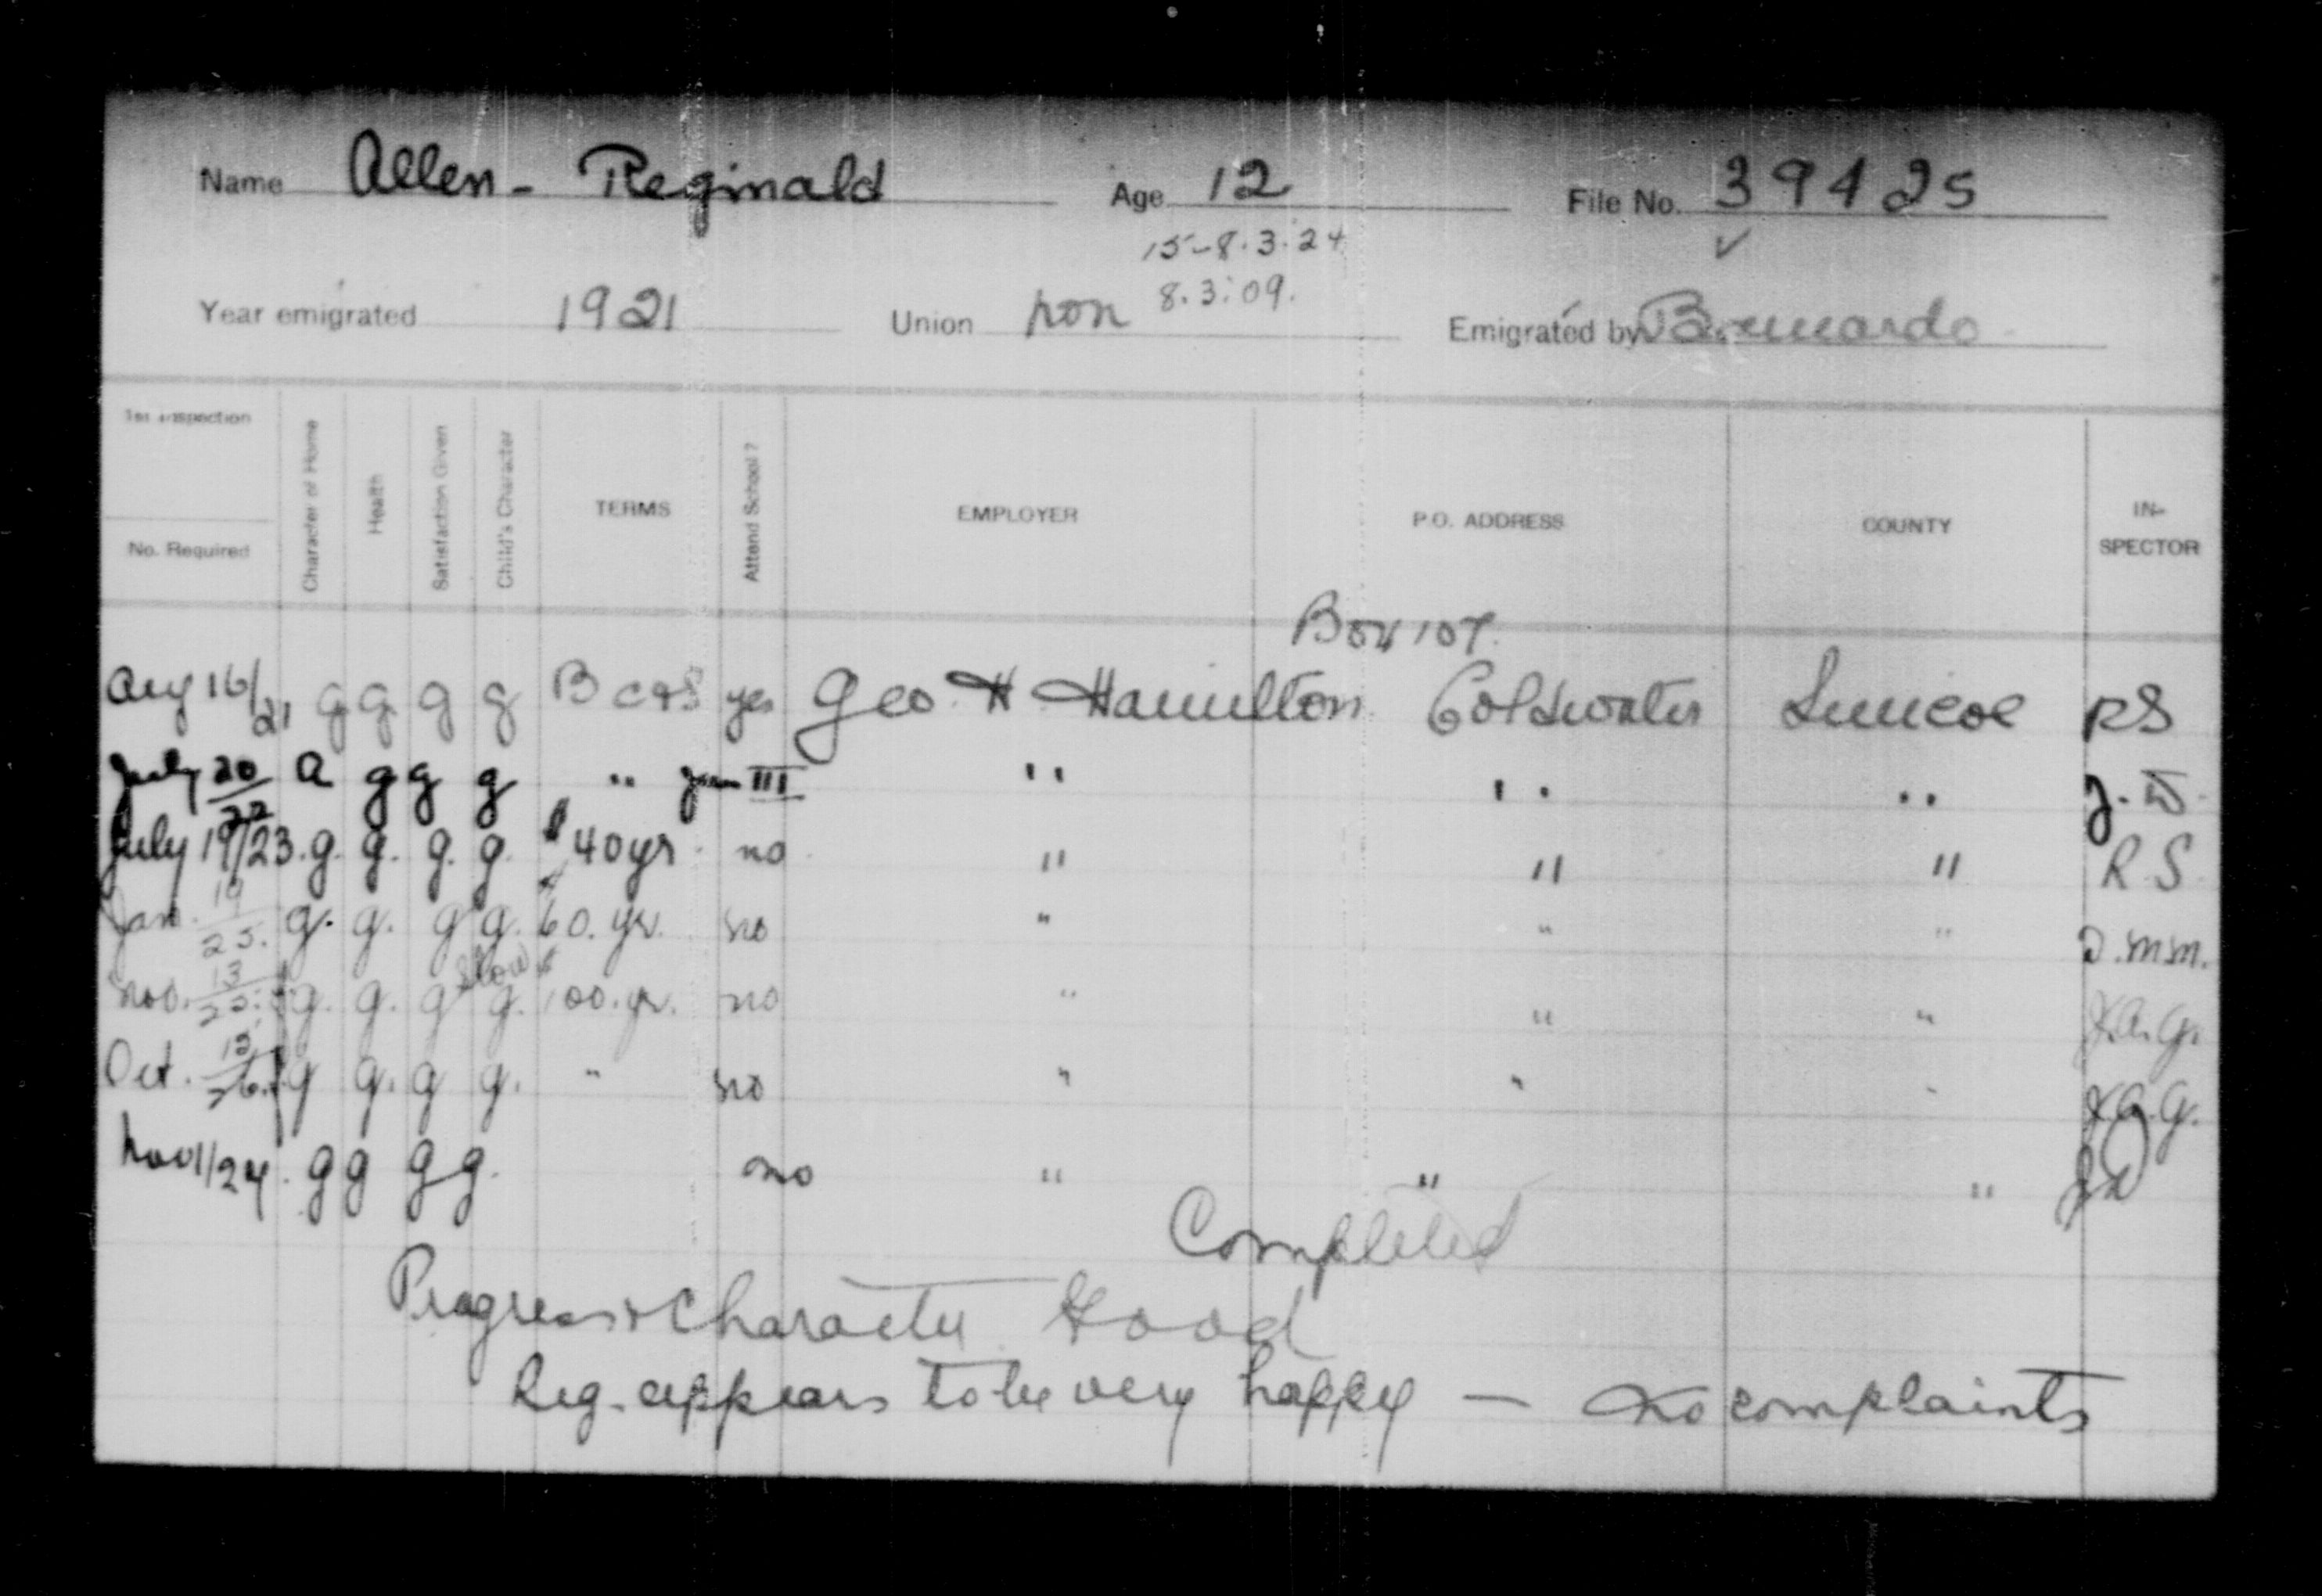 Name Allen - Reginald Age 12 File No. 39425
15-8.3.24 ✓
8.3.09.
Year emigrated 1921 Union non Emigrated by Barnardo
1st Inspection
No. Required
Character of Home
Health
Satisfaction Given
Child's Character
TERMS
Attend School?
EMPLOYER
P.O. ADDRESS
COUNTY
IN-
SPECTOR
Box 107.
Aug 16/21 g g. g g B C & S yes Geo. H Hamilton Coldwater Simcoe RS
July 20/22 a g g g " III " " " J. W.
July 19/23. g. g. g. g. $40 yr. no " " " R S
Jan. 19/25. g. g. g g. $60. yr. no " " " D. M M.
Slow
Nov. 13/25. g. g. g g. $100. yr. no " " "
Oct. 12/26. g g. g g. " no " " "
Nov 1/24. g g g g. no " " "
Completed
Progress & Character Good
Reg. appears to be very happy — No complaints